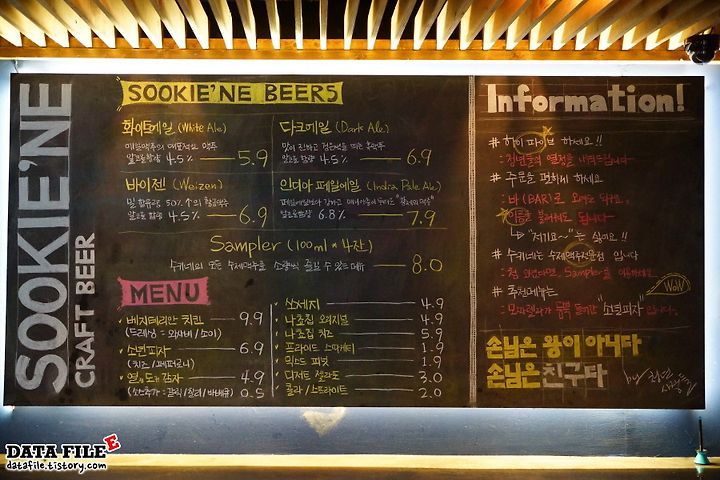 SOOKIE'NE
CRAFT BEER
SOOKIE'NE BEERS
화이트에일 (White Ale)
알코올함량 4.5% 5.9
다크에일 (Dark Ale)
알코올함량 4.5% 6.9
바이젠 (Weizen)
밀 함유량 50% ↑의
알코올 함량 4.5% 6.9
인디아 페일에일 (India Pale Ale)
알코올함량 6.8% 7.9
Sampler (100ml * 4잔)
수키네의 모든 수제맥주를 소량씩 즐길 수 있는 메뉴 8.0
MENU
베지테리안 치킨 9.9
(드레싱 : 와사비 / 소이)
소년피자 6.9
(치즈 / 페퍼로니)
열도는 감자 4.9
(소스추가 : 갈릭 / 칠리 / 바베큐) 0.5
소세지 4.9
나쵸칩 오리지널 4.9
나쵸칩 치즈 5.9
프라이드 스파게티 1.9
믹스드 피넛 1.9
디저트 젤라또 3.0
콜라 / 스프라이트 2.0
Information!
# 하이 파이브 하세요!!
: 청년들의 열정을
# 주문을 편하게 하세요
: 바(BAR)로 오셔도 되구요,
이름을 불러줘도 됩니다
"저기요~"는 싫어요!!
# 수키네는 수제맥주전문점 입니다
# 추천메뉴는
WOW
"소년피자" 입니다.
손님은 왕이 아니다
손님은 친구다
by 청년
DATA FILE E
datafile.tistory.com